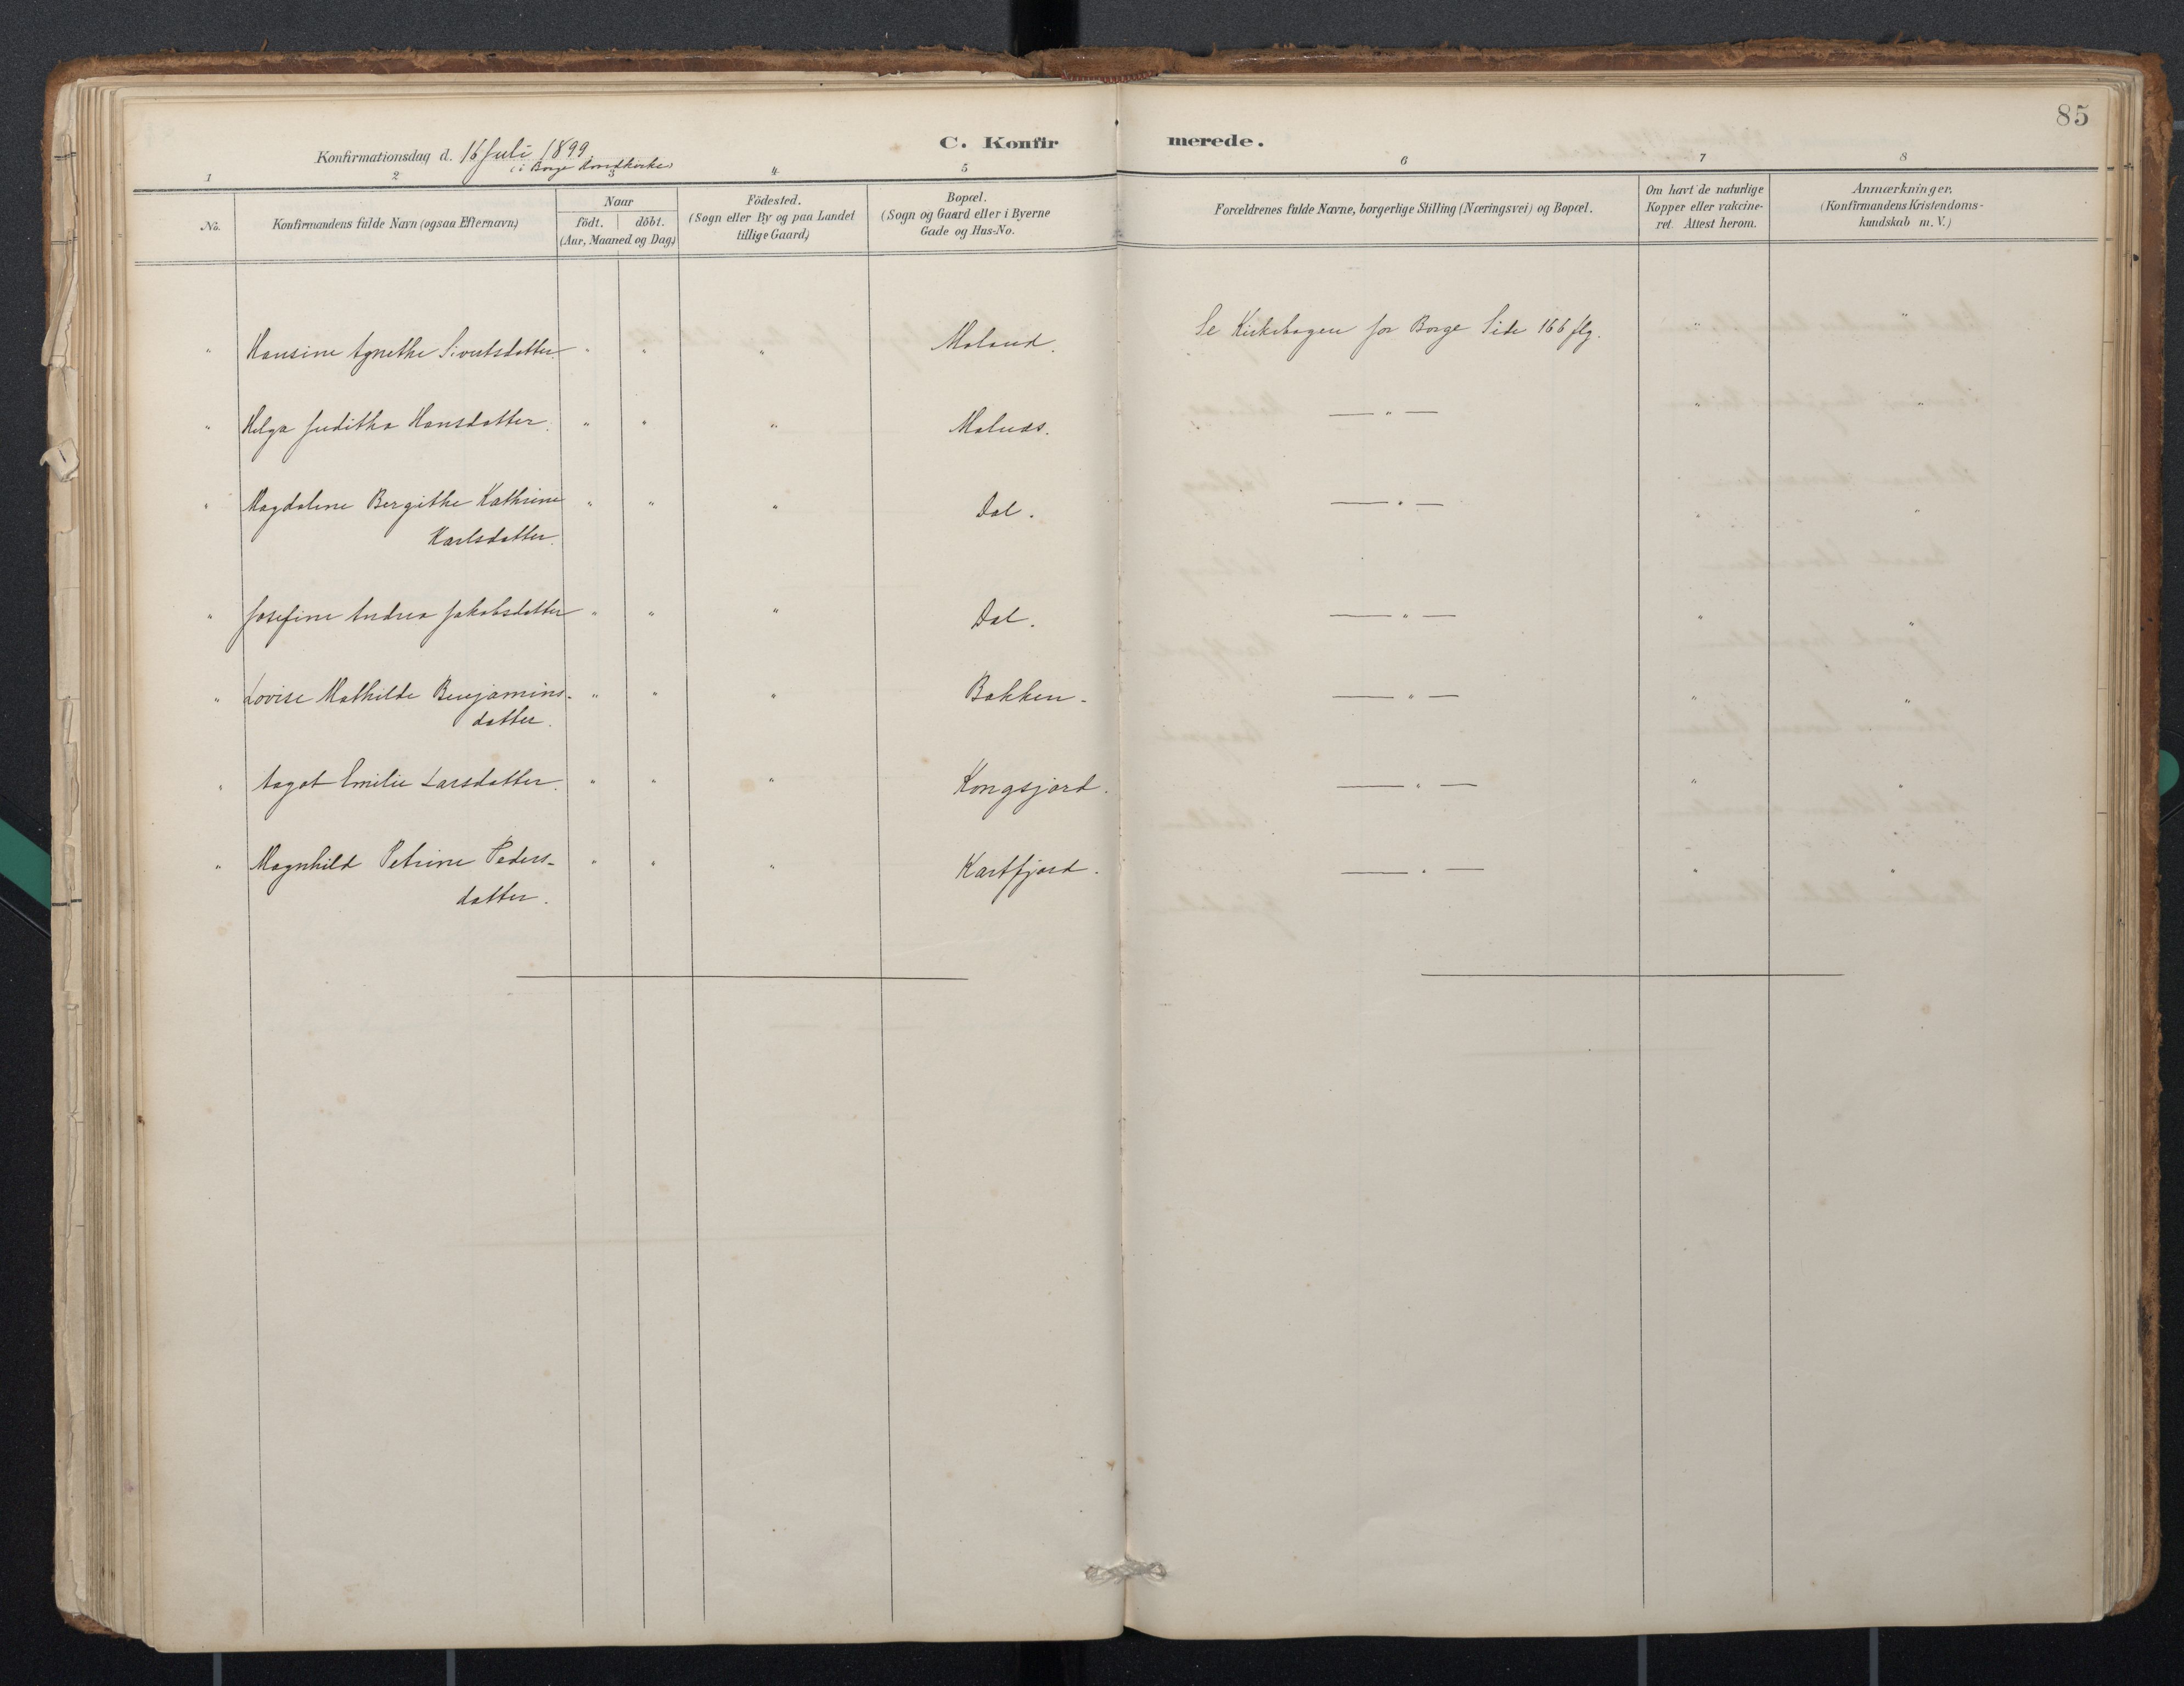 85
C. Konfirmerede.
Konfirmationsdag d. 16 Juli 1899.
(i Borge
1 2 3 4 5 6 7 8
No.
Konfirmandens fulde Navn (ogsaa Efternavn)
Naar
födt. | döbt.
(Aar, Maaned og Dag)
Födested.
(Sogn eller By og paa Landet
tillige Gaard)
Bopæl.
(Sogn og Gaard eller i Byerne
Gade og Hus-No.
Forældrenes fulde Navne, borgerlige Stilling (Næringsvei) og Bopæl.
Om havt de naturlige
Kopper eller vakcine-
ret. Attest herom.
Anmærkninger.
(Konfirmandens Kristendoms-
kundskab m. V.)
" Hansine Agnethe Sivertsdatter " " " Moland. Se Kirkebogen for Borge Side 166 flg. " "
" Helga Juditha Hansdatter. " " " — " — " "
" Magdalene Bergithe Kathrine " " " Dal. — " — " "
Karlsdatter.
" Josefine Andrea Jakobsdatter " " " Dal. — " — " "
" Lovise Mathilde Benjamins- " " " Bakken. — " — " "
datter.
" Aagot Emilie Larsdatter. " " " Kongsjord. — " — " "
" Magnhild Petrine Peders- " " " Kartfjord. — " — " "
datter.